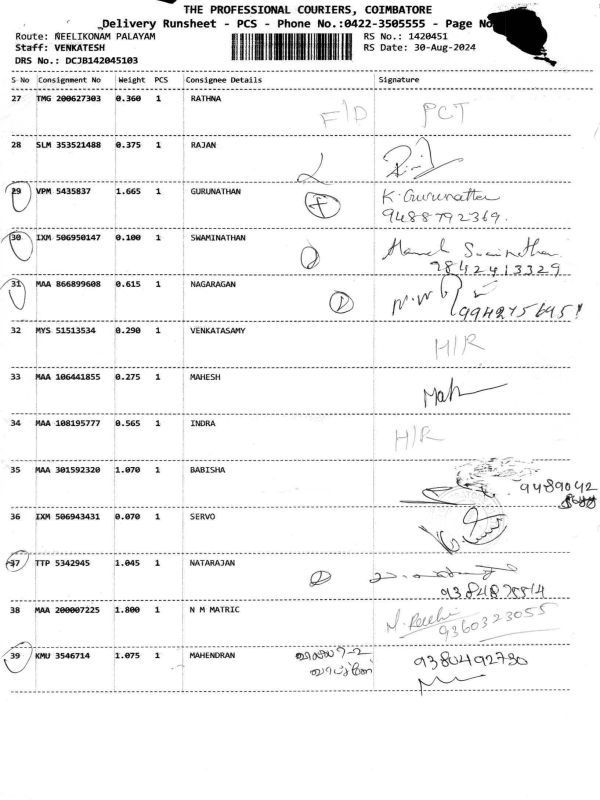 THE PROFESSIONAL COURIERS, COIMBATORE
Delivery Runsheet - PCS - Phone No.:0422-3505555 - Page No
Route: NEELIKONAM PALAYAM RS No.: 1420451
Staff: VENKATESH RS Date: 30-Aug-2024
DRS No.: DCJB142045103
S No Consignment No Weight PCS Consignee Details Signature
27 TMG 200627303 0.360 1 RATHNA F/D PCT
28 SLM 353521488 0.375 1 RAJAN
29 VPM 5435837 1.665 1 GURUNATHAN K. Gurunathan
9488792369.
30 IXM 506950147 0.100 1 SWAMINATHAN
9842413329
31 MAA 866899608 0.615 1 NAGARAGAN
32 MYS 51513534 0.290 1 VENKATASAMY H/R
33 MAA 106441855 0.275 1 MAHESH Mah
34 MAA 108195777 0.565 1 INDRA H/R
35 MAA 301592320 1.070 1 BABISHA 9489042
36 IXM 506943431 0.070 1 SERVO
37 TTP 5342945 1.045 1 NATARAJAN
38 MAA 200007225 1.800 1 N M MATRIC
9360323055
39 KMU 3546714 1.075 1 MAHENDRAN 9380492730